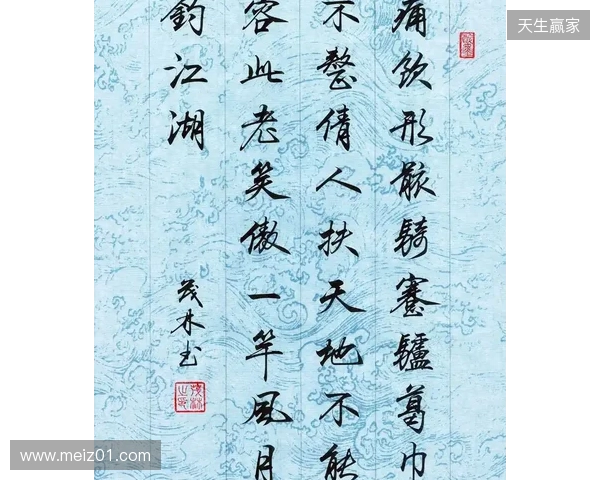 天生赢家
痛饮形骸騎蹇驢葛巾
不整倩人扶天地不能
容此老笑傲一竿風月
釣江湖
茂林书
www.meiz01.com